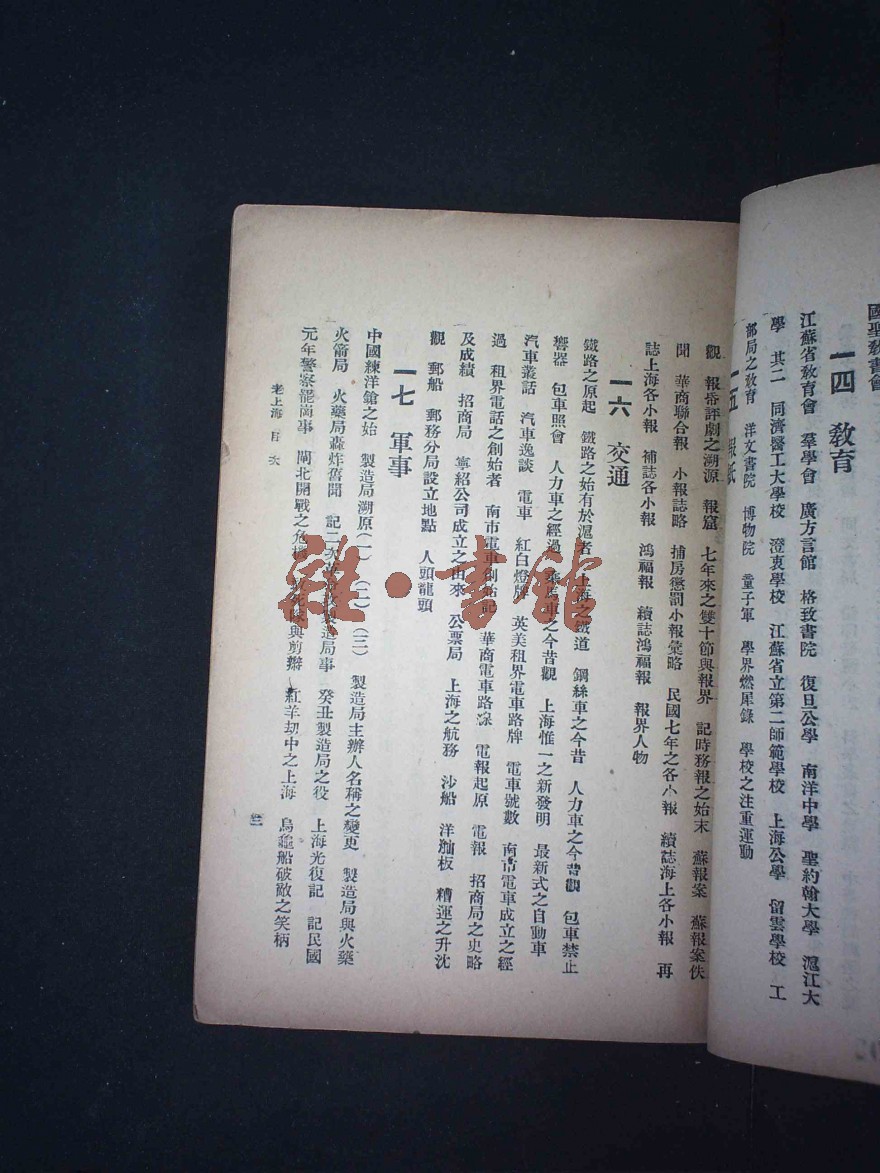 國聖教書會
一四　教育
江蘇省教育會　羣學會　廣方言館　格致書院　復旦公學　南洋中學　聖約翰大學　滬江大
學　其二　同濟醫工大學校　澄衷學校　江蘇省立第二師範學校　上海公學　留雲學校　工
部局之教育　洋文書院　博物院　童子軍　學界燃犀錄　學校之注重運動
一五　報紙
觀　報岳評劇之溯源　報窟　七年來之雙十節與報界　記時務報之始末　蘇報案　蘇報案佚
聞　華商聯合報　小報誌略　捕房懲罰小報彙略　民國七年之各小報　續誌海上各小報　再
誌上海各小報　補誌各小報　鴻福報　續誌鴻福報　報界人物
一六　交通
鐵路之原起　鐵路之始有於滬者　上海之鐵道　鋼絲車之今昔　人力車之今昔觀　包車禁止
響器　包車照會　人力車之經過　乘馬車之今昔觀　上海惟一之新發明　最新式之自動車
汽車叢話　汽車逸談　電車　紅白燈牌　英美租界電車路牌　電車號數　南市電車成立之經
過　租界電話之創始者　南市電車創始記　華商電車路線　電報起原　電報　招商局之史略
及成績　招商局　寧紹公司成立之由來　公票局　上海之航務　沙船　洋舢板　糟運之升沈
觀　郵船　郵務分局設立地點　人頭龍頭
一七　軍事
中國練洋鎗之始　製造局溯原(一)　(二)　(三)　製造局主辦人名稱之變更　製造局與火藥
火箭局　火藥局轟炸舊聞　記二次　造局事　癸丑製造局之役　上海光復記　記民國
元年警察罷崗事　閘北開戰之危機　死隊與剪辮　紅羊刧中之上海　烏龜船破敵之笑柄
老上海　目次
雜·書館